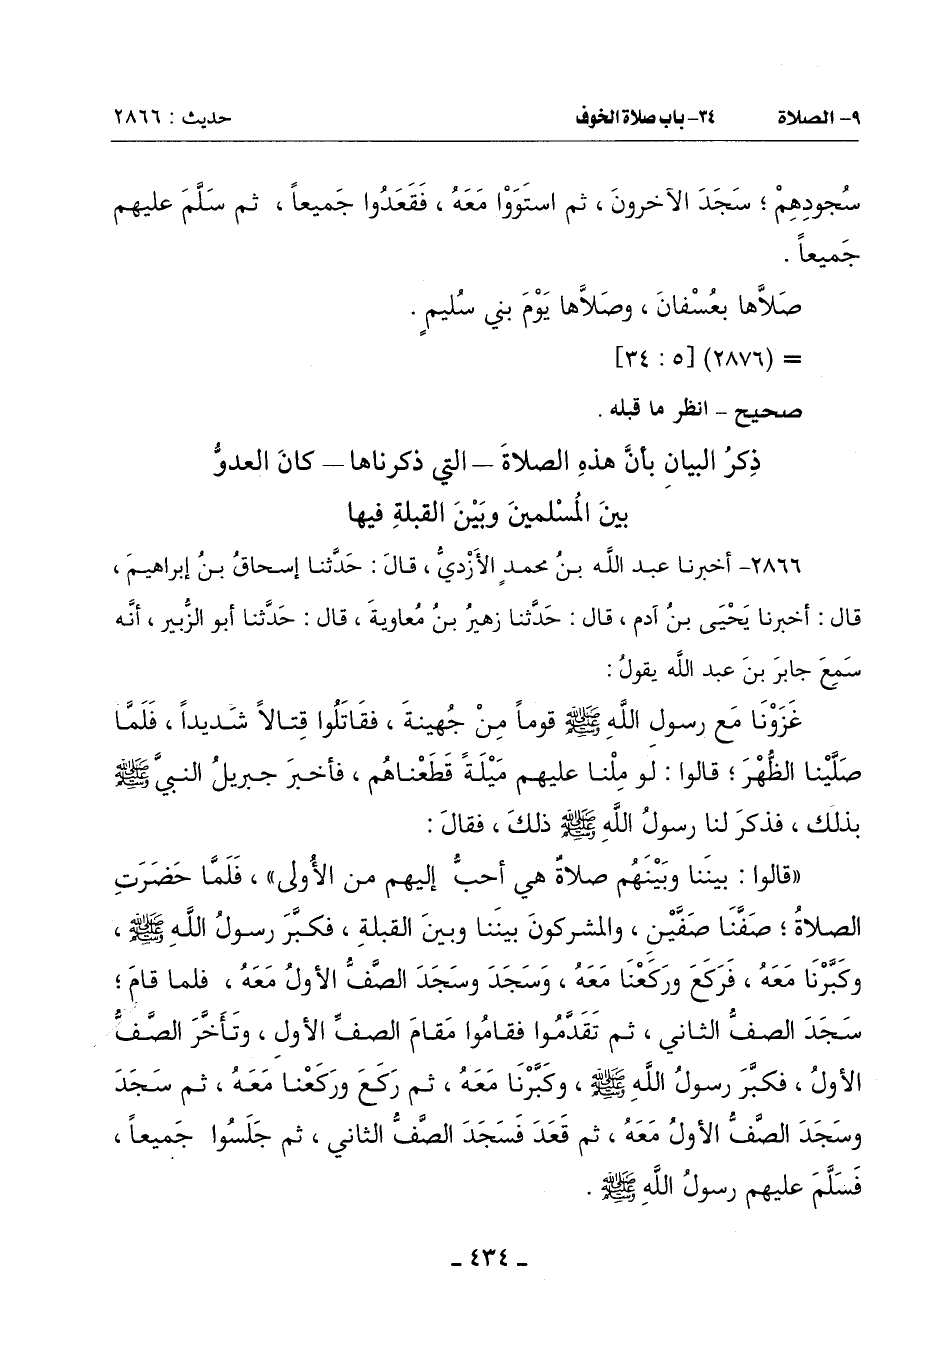 ٩- الصلاة ٣٤- باب صلاة الخوف حديث : ٢٨٦٦
سُجودِهِمْ ؛ سَجَدَ الآخرونَ ، ثم استَوَوْا مَعَهُ ، فَقَعَدُوا جَميعاً ، ثم سَلَّمَ عليهم
جَميعاً .
صَلاَّها بعُسْفانَ ، وصَلاَّها يَوْمَ بني سُليمٍ .
= (٢٨٧٦) [٥ : ٣٤]
صحيح - انظر ما قبله .
ذِكرُ البيانِ بأنَّ هذهِ الصلاةَ – التي ذكرناها – كانَ العدوُّ
بينَ المُسْلمينَ وبَيْنَ القبلةِ فيها
٢٨٦٦- أخبرنا عبد اللَّه بنُ محمدٍ الأَزْديُّ ، قالَ : حَدَّثنا إسحاقُ بنُ إبراهيمَ ،
قال : أخبرنا يَحْيَى بنُ آدم ، قال : حَدَّثنا زهيرُ بنُ مُعاويةَ ، قال : حَدَّثنا أبو الزُّبير ، أنَّه
سَمِعَ جابرَ بنَ عبد اللَّه يقولُ :
غَزَوْنَا مَع رسول اللَّهِ ﷺ قوماً مِنْ جُهينةَ ، فقَاتَلُوا قِتالاً شَديداً ، فَلَمَّا
صَلَّيْنا الظُّهْرَ ؛ قالوا : لو مِلْنا عليهم مَيْلَةً قَطَعْناهُم ، فأخبرَ جبريلُ النبيَّ ﷺ
بذلك ، فذكرَ لنا رسولُ اللَّهِ ﷺ ذلكَ ، فقالَ :
«قالوا : بيننَا وبَيْنَهُم صلاةٌ هي أحبُّ إليهم من الأُولى» ، فَلَمَّا حَضَرَتِ
الصلاةُ ؛ صفَّنَا صَفَّيْنِ ، والمشركونَ بيننَا وبينَ القبلة ، فكبَّرَ رسولُ اللَّهِ ﷺ ،
وكَبَّرْنَا مَعَهُ ، فَرَكَعَ ورَكَعْنَا مَعَهُ ، وَسَجَدَ وسَجَدَ الصَّفُّ الأولُ مَعَهُ ، فلما قامَ ؛
سَجَدَ الصفُّ الثاني ، ثم تَقَدَّمُوا فقامُوا مَقامَ الصفِّ الأول ، وتَأَخَّرَ الصَّفُّ
الأولُ ، فكبَّرَ رسولُ اللَّهِ ﷺ ، وكَبَّرْنَا مَعَهُ ، ثم رَكَعَ ورَكَعْنا مَعَهُ ، ثم سَجَدَ
وسَجَدَ الصَّفُّ الأولُ مَعَهُ ، ثم قَعَدَ فَسَجَدَ الصَّفُّ الثاني ، ثم جَلَسُوا جَميعاً ،
فَسَلَّمَ عليهم رسولُ اللَّهِ ﷺ .
- ٤٣٤ -